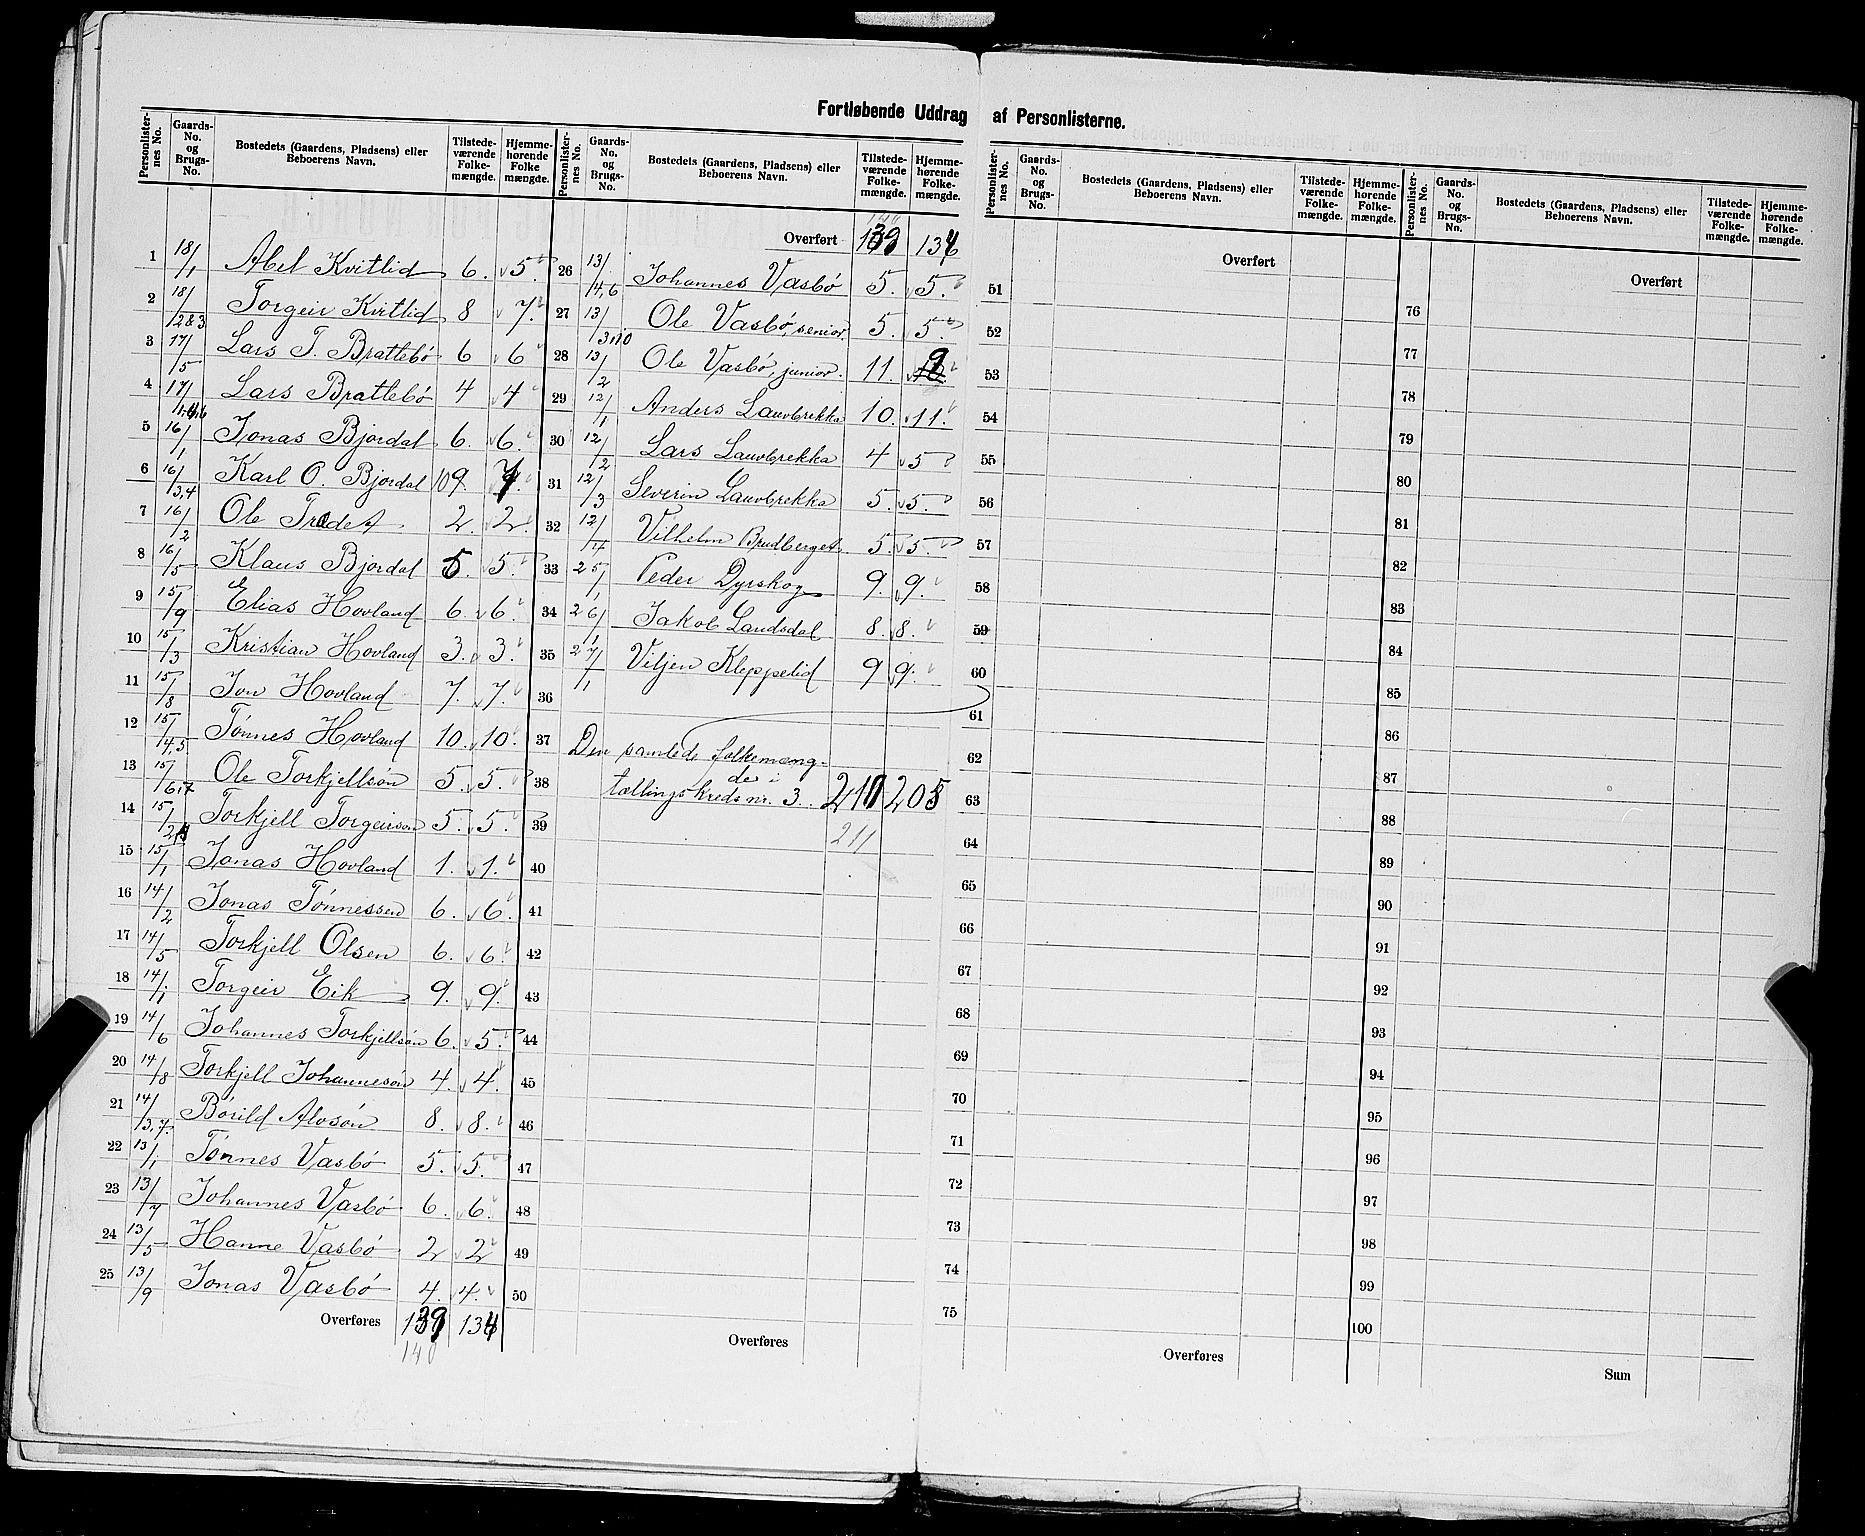 Fortløbende Uddrag af Personlisterne.
Personlister-nes No. Gaards-No. og Brugs-No. Bostedets (Gaardens, Pladsens) eller Beboerens Navn. Tilstede-værende Folke-mængde. Hjemme-hørende Folke mængde.
1 18/1 Abel Kvitlid 6. 5.
2 18/2&3 Torgeir Kvitlid 8 7.
3 17/5 Lars T. Brattebø 6 6
4 17/ Lars Brattebø 4 4
5 16/1 Jonas Bjordal 6. 6.
6 16/3,4 Karl O. Bjordal
7 16/2 Ole Trædet 2. 2.
8 16/5 Klaus Bjordal 5. 5.
9 15/9 Elias Hovland 6. 6.
10 15/3 Kristian Hovland 3. 3.
11 15/8 Jon Hovland 7. 7.
12 15/14,5 Tønnes Hovland 10. 10.
13 15/6,17 Ole Torkjellsøn 5. 5.
14 15/ Torkjell Torgeirson 5. 5.
15 15/1 Jonas Hovland 1. 1.
16 14/2 Jonas Tønnessen 6. 6.
17 14/5 Torkjell Olsen 6. 6.
18 14/1 Torgeir Eik 9. 9.
19 14/6 Johannes Torkjellsøn 6. 5.
20 14/8 Torkjell Johannesøn 4. 4.
21 14/3,7. Børild Alvsøn 8. 8.
22 13/1 Tønnes Vasbø 5. 5.
23 13/7 Johannes Vasbø 6. 6.
24 13/5 Hanne Vasbø 2 2
25 13/9 Jonas Vasbø 4. 4.
Overføres 139 134
140
Personlister-nes No. Gaards-No. og Brugs-No. Bostedets (Gaardens, Pladsens) eller Beboerens Navn. Tilstede-værende Folke-mængde. Hjemme-hørende Folke-mængde.
140
Overført 139 134
26 13/4,6 Johannes Vasbø 5. 5.
27 13/3,10 Ole Vasbø, senior. 5. 5.
28 13/2 Ole Vasbø, junior. 11. 9
29 12/1 Anders Lauvbrekka 10. 11.
30 12/2 Lars Lauvbrekka 4 5
31 12/3 Severin Lauvbrekka 5. 5.
32 12/4 Vilhelm Brudberget 5. 5.
33 25/1 Peder Dyrskog 9. 9.
34 26/1 Jakob Landsdal 8. 8.
35 27/1 Viljen Kleppelid 9 9.
36
37 Den samlede folkemæng-
38 de i
tællingskreds nr. 3. 210 205
39
211
40
41
42
43
44
45
46
47
48
49
50
Overføres
Personlister-nes No. Gaards-No. og Brugs-No. Bostedets (Gaardens, Pladsens) eller Beboerens Navn. Tilstede-værende Folke-mængde. Hjemme-hørende Folke-mængde.
Overført
51
52
53
54
55
56
57
58
59
60
61
62
63
64
65
66
67
68
69
70
71
72
73
74
75
Overføres
Personlister-nes No. Gaards-No. og Brugs-No. Bostedets (Gaardens, Pladsens) eller Beboerens Navn. Tilstede-værende Folke-mængde. Hjemme-hørende Folke-mængde.
Overført
76
77
78
79
80
81
82
83
84
85
86
87
88
89
90
91
92
93
94
95
96
97
98
99
100
Sum